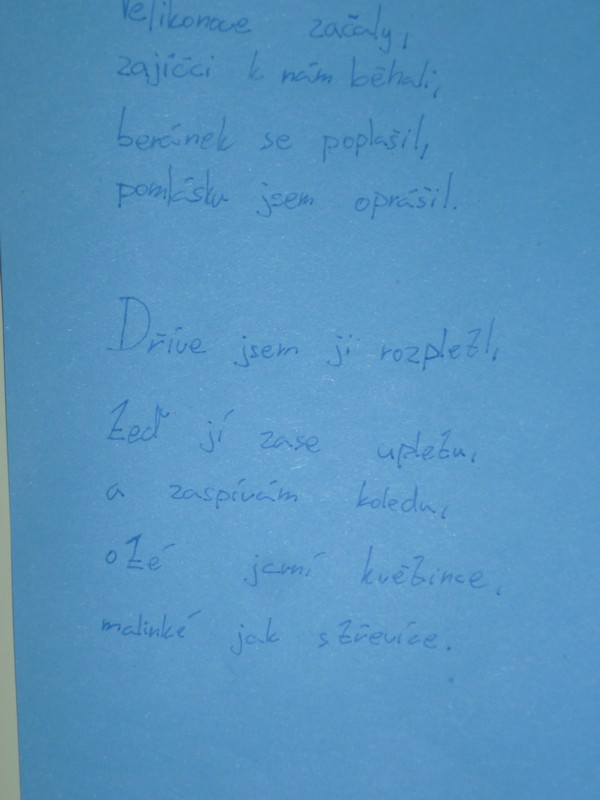 Velikonoce začaly,
zajíčci k nám běhali,
beránek se poplašil,
pomlásku jsem oprášil.
Dříve jsem ji rozpletl,
teď jí zase upletu,
a zaspívám koledu,
o té jarní květince,
malinké jak střevíce.